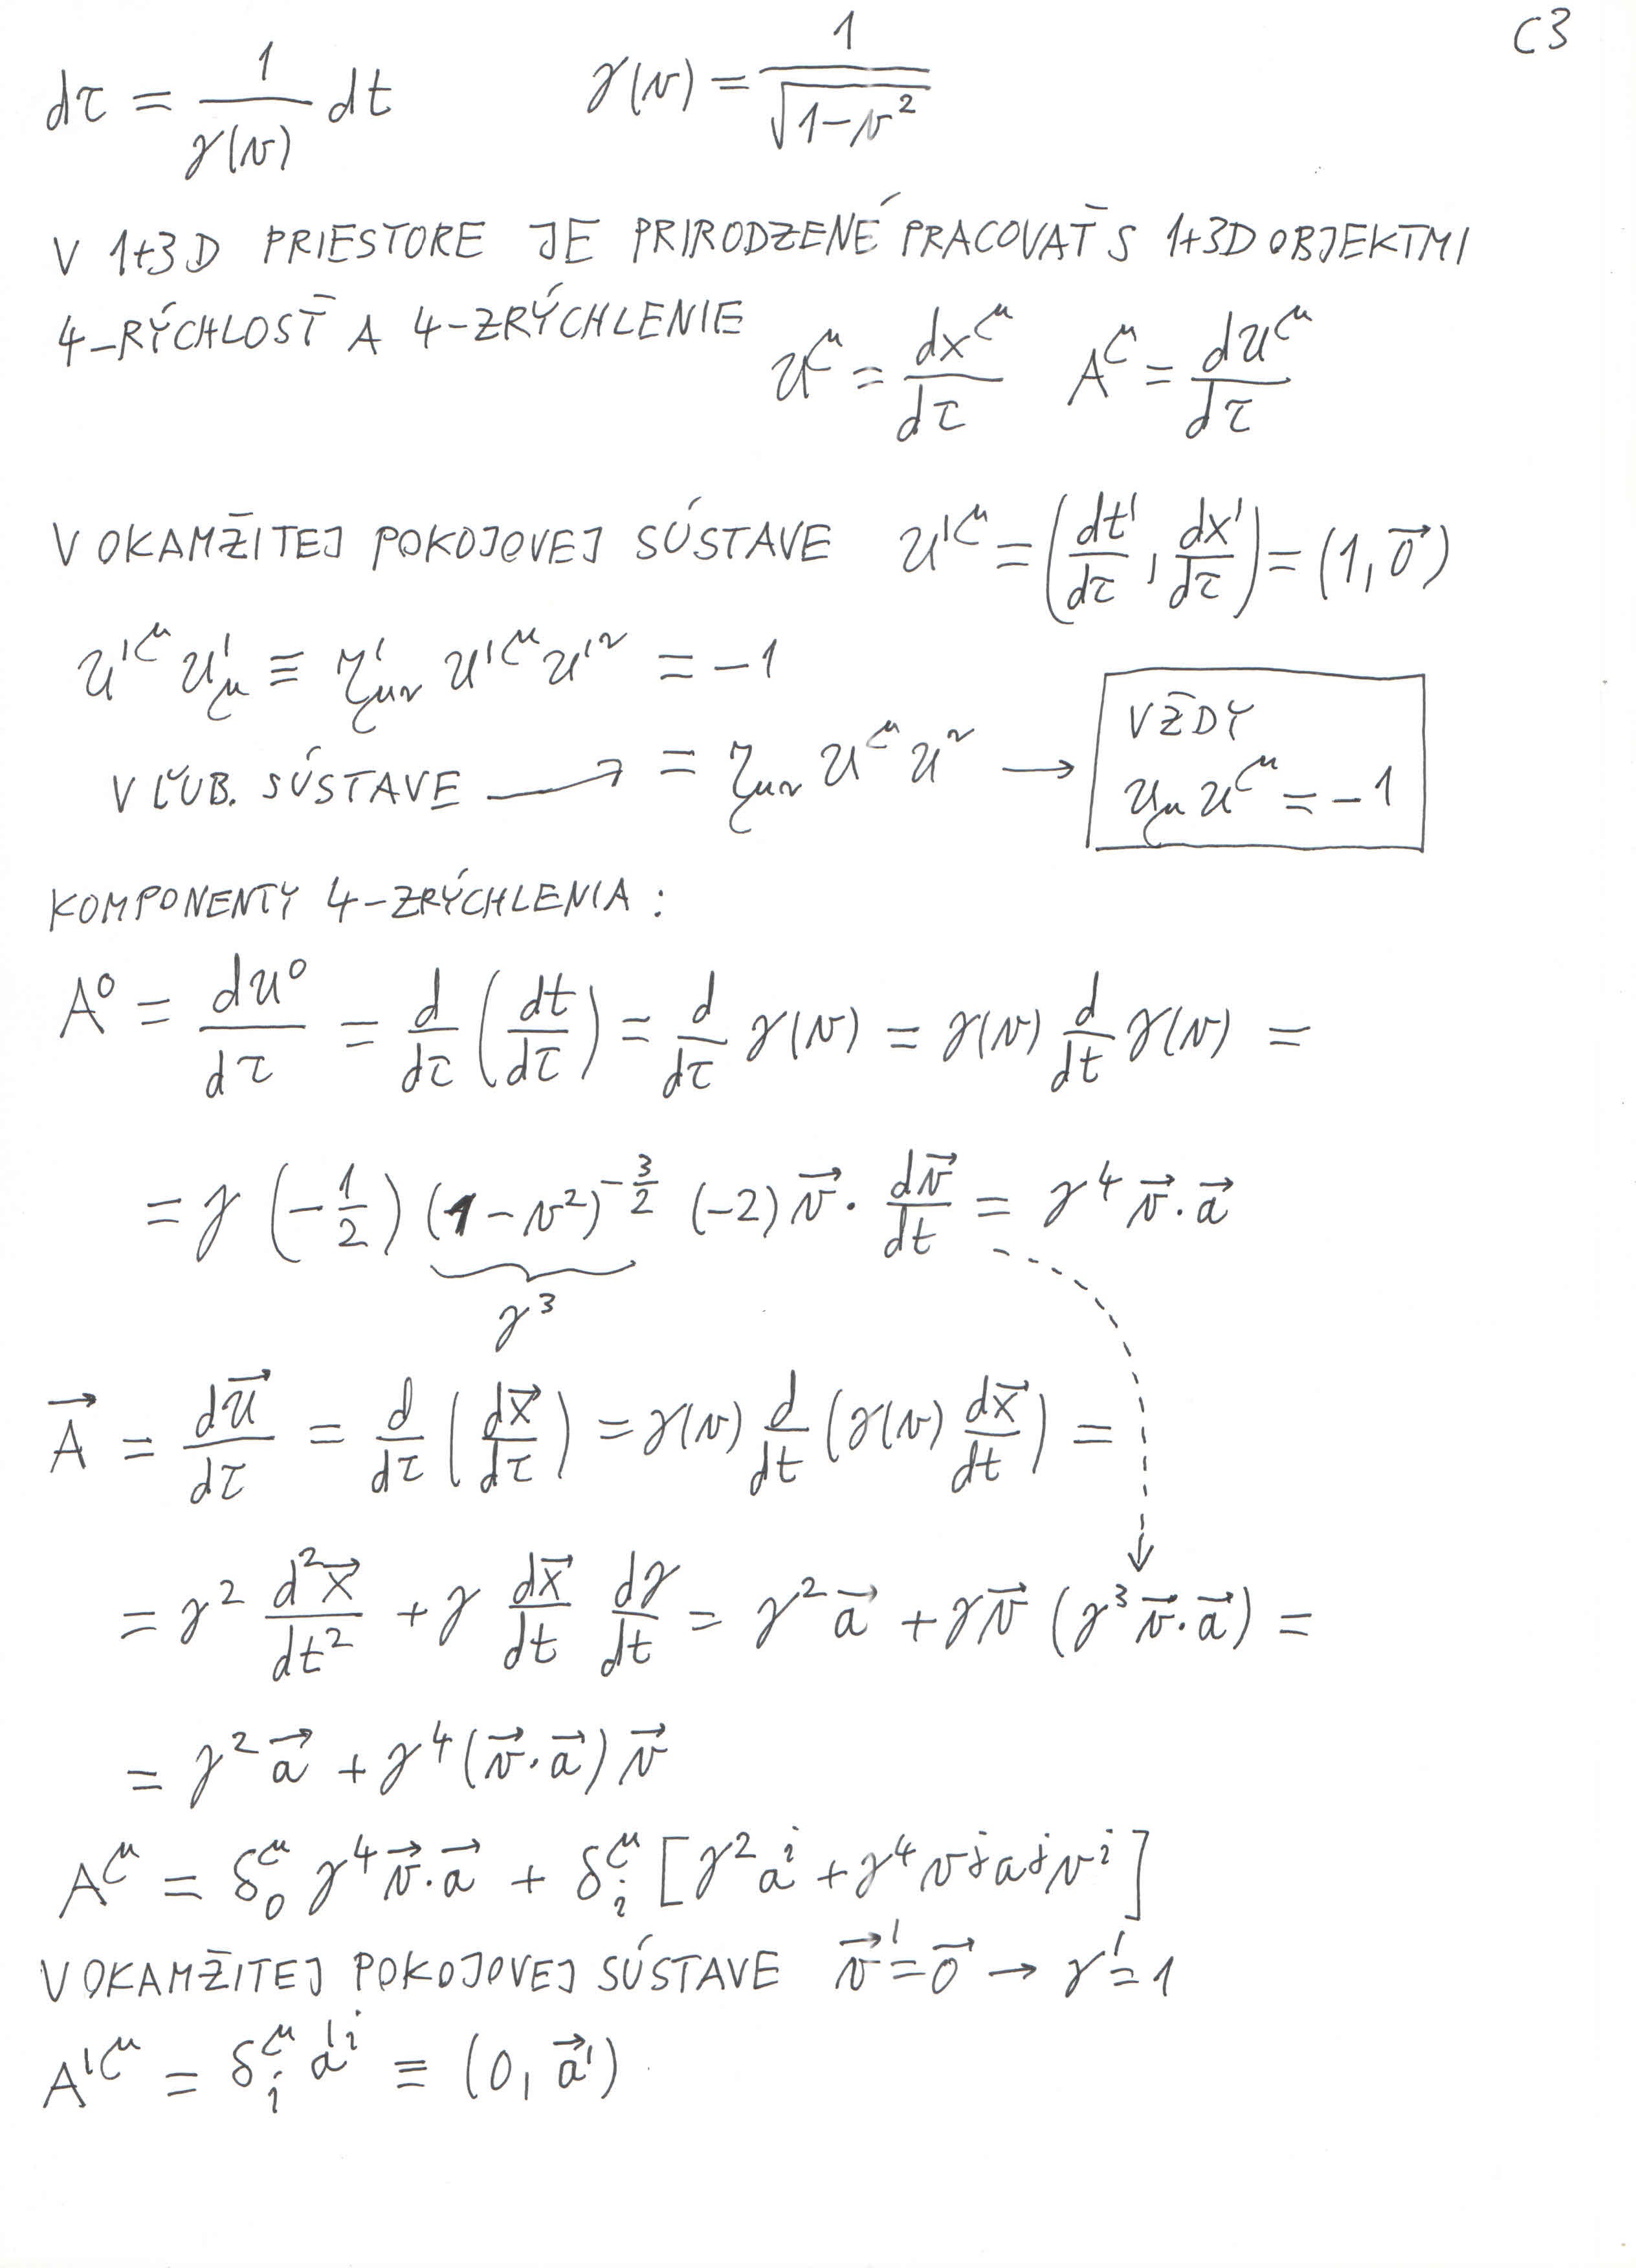 C3
dτ = 1/γ(v) dt    γ(v) = 1/√(1-v²)
V 1+3D PRIESTORE JE PRIRODZENÉ PRACOVAŤ S 1+3D OBJEKTMI
4-RÝCHLOSŤ A 4-ZRÝCHLENIE    u^μ = dx^μ/dτ    A^μ = du^μ/dτ
V OKAMŽITEJ POKOJOVEJ SÚSTAVE    u'^μ = (dt'/dτ, dx'/dτ) = (1, 0⃗)
u'^μ u'_μ ≡ η'_μν u'^μ u'^ν = -1
V ĽUB. SÚSTAVE → = η_μν u^μ u^ν →
VŽDY
u_μ u^μ = -1
KOMPONENTY 4-ZRÝCHLENIA :
A⁰ = du⁰/dτ = d/dτ (dt/dτ) = d/dτ γ(v) = γ(v) d/dt γ(v) =
= γ (-1/2) (1-v²)^(-3/2) (-2) v⃗ · dv⃗/dt = γ⁴ v⃗·a⃗
γ³
A⃗ = du⃗/dτ = d/dτ (dx⃗/dτ) = γ(v) d/dt (γ(v) dx⃗/dt) =
= γ² d²x⃗/dt² + γ dx⃗/dt dγ/dt = γ² a⃗ + γv⃗ (γ³ v⃗·a⃗) =
= γ² a⃗ + γ⁴ (v⃗·a⃗) v⃗
A^μ = δ^μ_0 γ⁴ v⃗·a⃗ + δ^μ_i [γ² a^i + γ⁴ v^j a^j v^i]
V OKAMŽITEJ POKOJOVEJ SÚSTAVE    v⃗' = 0⃗ → γ' = 1
A'^μ = δ^μ_i a'^i ≡ (0, a⃗')